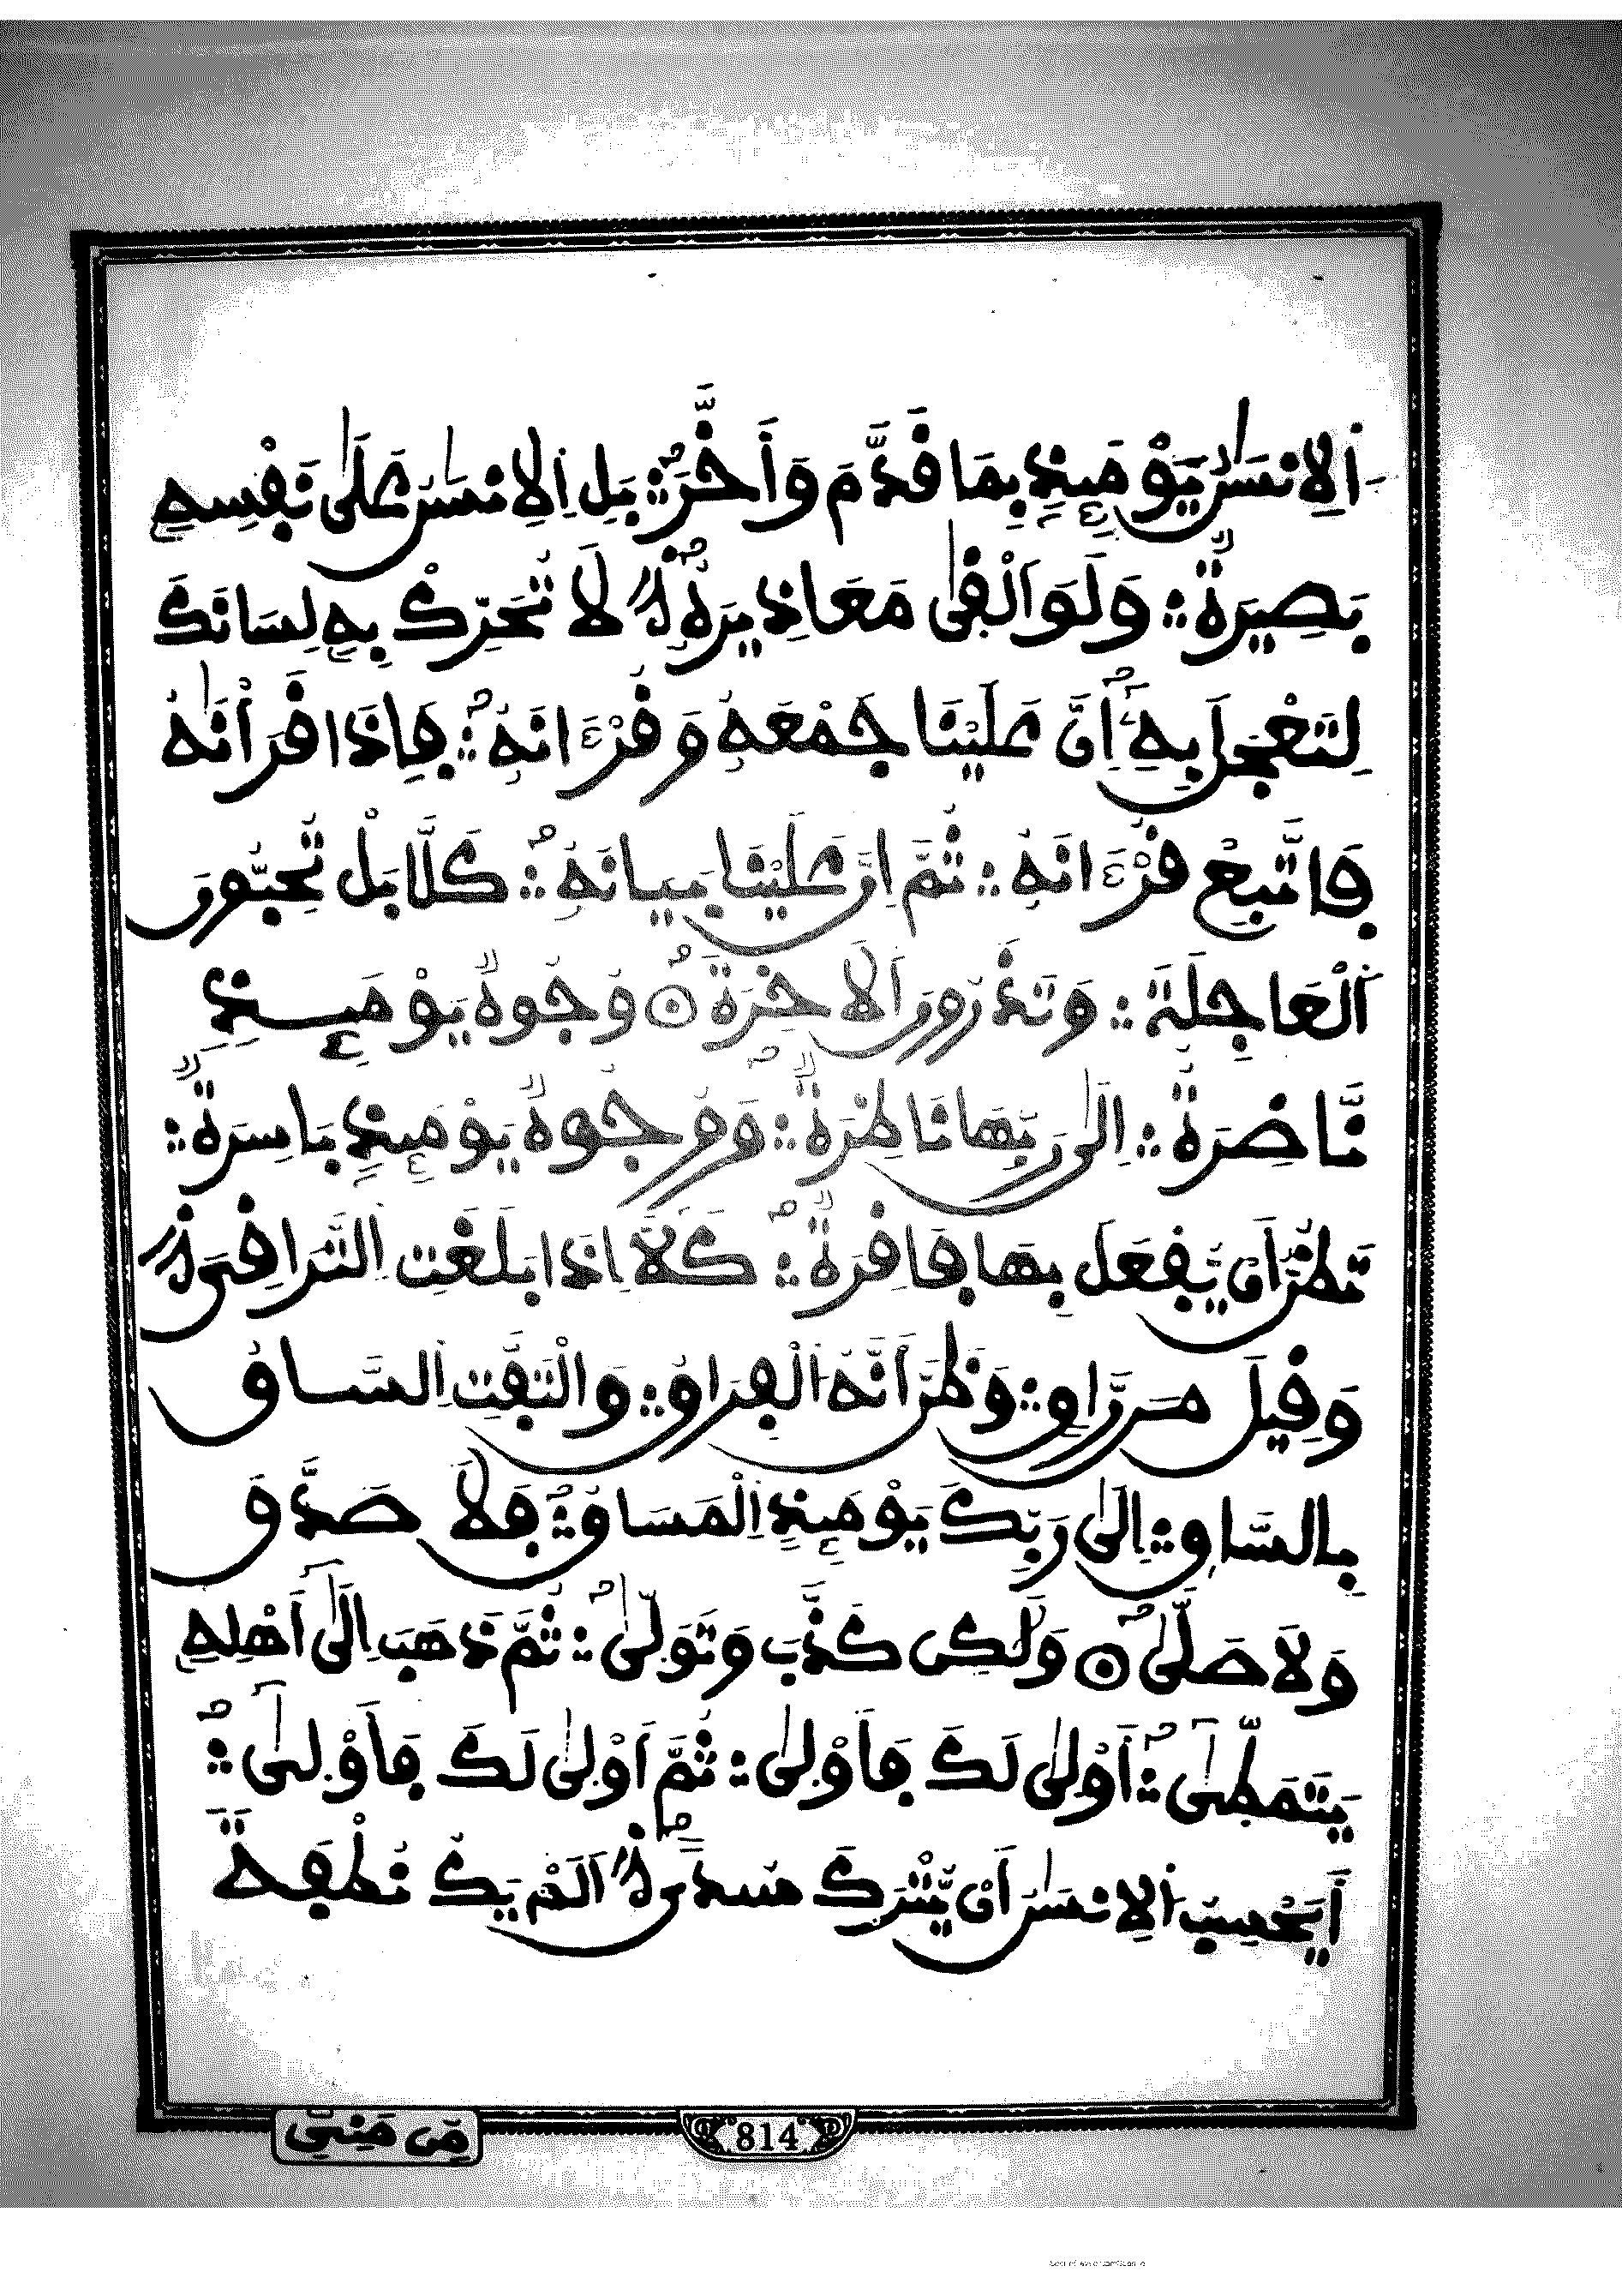 اَ۬لِانسَٰنُ يَوْمَئِذِۢ بِمَا قَدَّمَ وَأَخَّرَ ؞ بَلِ اِ۬لِانسَٰنُ عَلَىٰ نَفْسِهِۦ
بَصِيرَةٞ ؞ وَلَوَ اَلْقٜىٰ مَعَاذِيرَهُۥ لَا تُحَرِّكْ بِهِۦ لِسَانَكَ
لِتَعْجَلَ بِهِۦٓ إِنَّ عَلَيْنَا جَمْعَهُۥ وَقُرْءَانَهُۥ ؞ فَإِذَا قَرَأْنَٰهُ
فَاتَّبِعْ قُرْءَانَهُۥ ؞ ثُمَّ إِنَّ عَلَيْنَا بَيَانَهُۥ ؞ كَلَّا بَلْ تُحِبُّونَ
اَ۬لْعَاجِلَةَ ؞ وَتَذَرُونَ اَ۬لَاخِرَةَ ۝ وُجُوهٞ يَوْمَئِذٖ
نَّاضِرَةٌ ؞ اِلَىٰ رَبِّهَا نَاظِرَةٞ ؞ وَوُجُوهٞ يَوْمَئِذِۢ بَاسِرَةٞ ؞
تَظُنُّ أَنْ يُّفْعَلَ بِهَا فَاقِرَةٞ ؞ كَلَّآ إِذَا بَلَغَتِ اِ۬لتَّرَاقِيَ
وَقِيلَ مَن رَّاقٖ ؞ وَظَنَّ أَنَّهُ اُ۬لْفِرَاقُ ؞ وَالْتَفَّتِ اِ۬لسَّاقُ
بِالسَّاقِ ؞ إِلَىٰ رَبِّكَ يَوْمَئِذٍ اِ۬لْمَسَاقُ ؞ فَلَا صَدَّقَ
وَلَا صَلَّىٰ ۝ وَلَٰكِن كَذَّبَ وَتَوَلّٜىٰ ؞ ثُمَّ ذَهَبَ إِلَىٰٓ أَهْلِهِۦ
يَتَمَطّٜىٰٓ ؞ أَوْلٜىٰ لَكَ فَأَوْلٜىٰ ؞ ثُمَّ أَوْلٜىٰ لَكَ فَأَوْلٜىٰٓ ؞
أَيَحْسِبُ اُ۬لِانسَٰنُ أَنْ يُّتْرَكَ سُدىً اَلَمْ يَكُ نُطْفَةٗ
مِّن مَّنِيّٖ
814